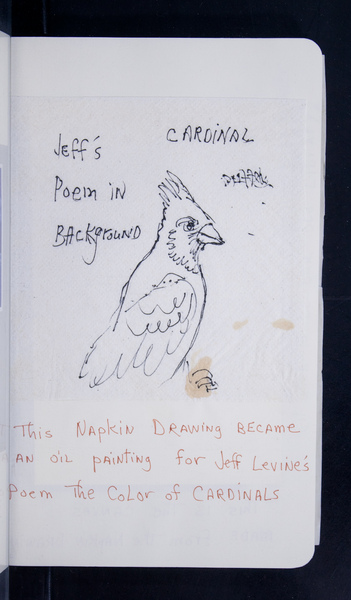 CARDINAL
Jeff's
Poem in
BACKground
This NAPKIN DRAWING BECAME
AN OIL PAINTING for Jeff Levine's
Poem The Color of CARDINALS